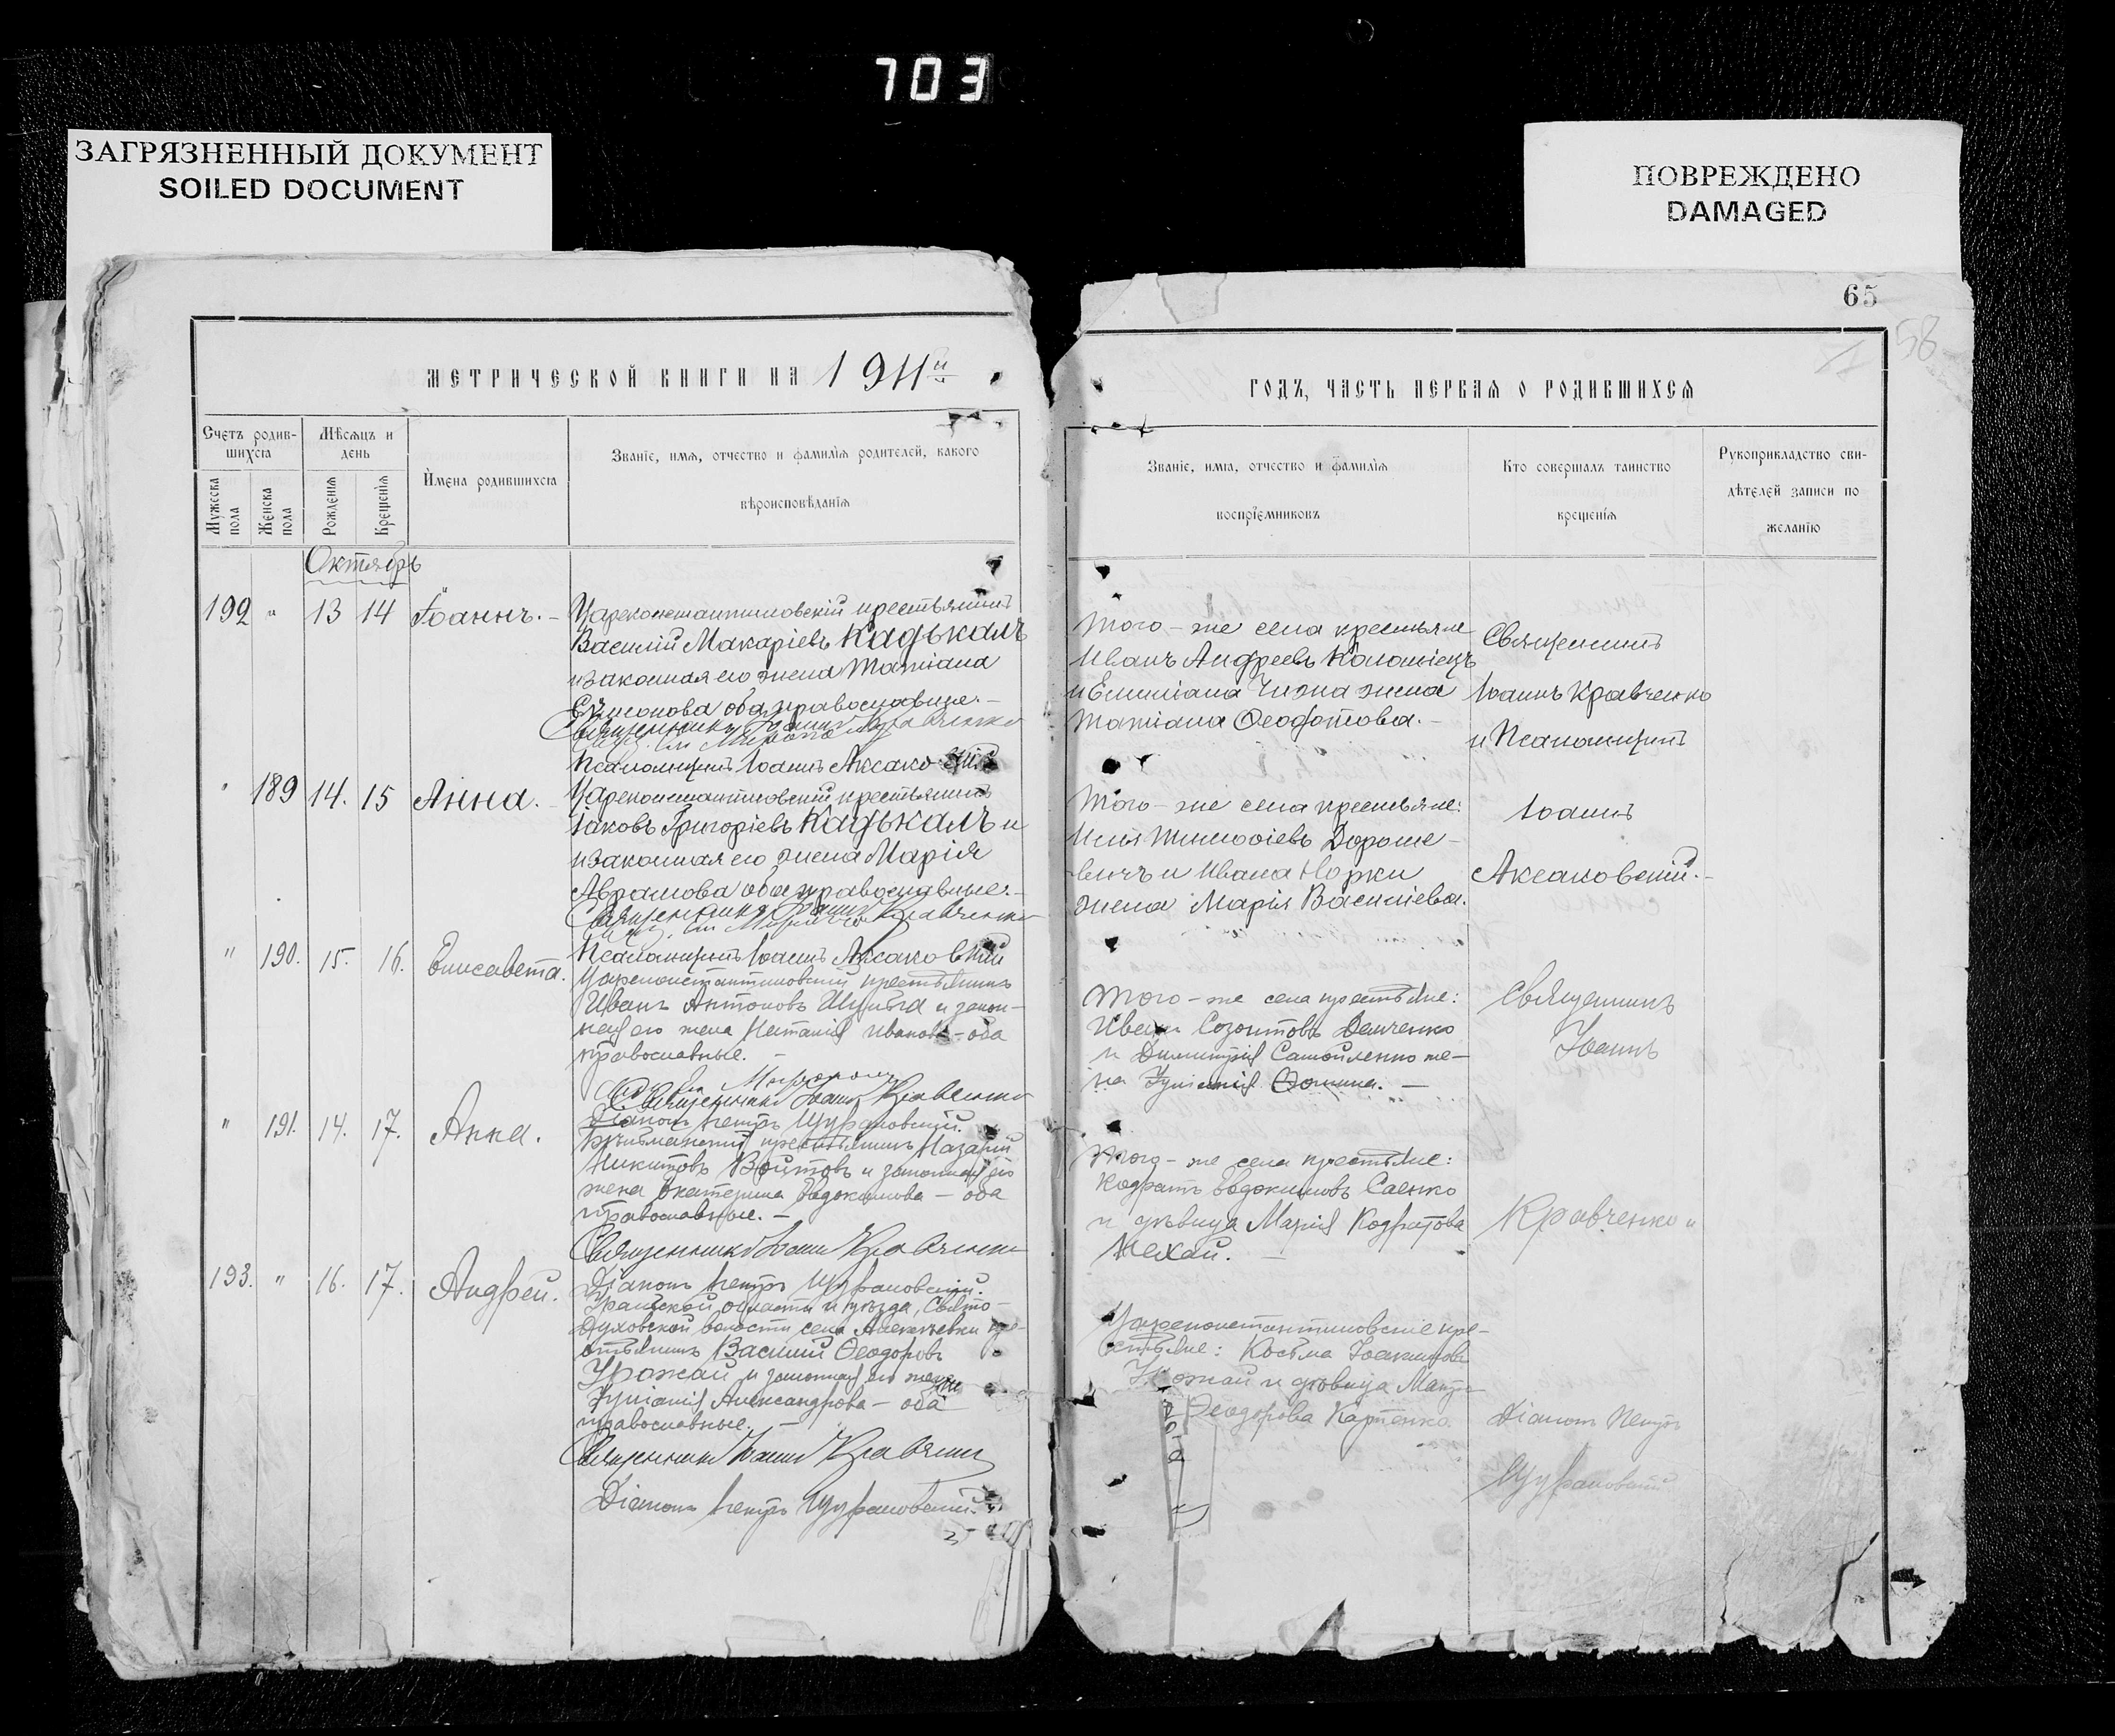 703
ЗАГРЯЗНЕННЫЙ ДОКУМЕНТ
SOILED DOCUMENT
ПОВРЕЖДЕНО
DAMAGED
65
58
МЕТРИЧЕСКОЙ КНИГИ НА 1911й
ГОДЪ, ЧАСТЬ ПЕРВАЯ О РОДИВШИХСЯ
Счетъ родив-
шихся
Мужеска пола
Женска пола
Мѣсяцъ и
день
Рожденія
Крещенія
Имена родившихся
Званіе, имя, отчество и фамилія родителей, какого
вѣроисповѣданія
Званіе, имя, отчество и фамилія
воспріемниковъ
Кто совершалъ таинство
крещенія
Рукоприкладство сви-
дѣтелей записи по
желанію
Октябрь
192 " 13 14 Іоаннъ. –
Цареконстантиновскій крестьянинъ
Василій Макаріевъ Кадькалъ
и законная его жена Татіана
оба православные. –
Священникъ Іоаннъ Кравченко
Псаломщикъ Іоаннъ Аксаковскій
Того-же села крестьяне
Иванъ Андреевъ Коломіецъ
и Емиліана жена
Татіана Ѳеодотова. –
Священникъ
Іоаннъ Кравченко
и Псаломщикъ
" 189 14. 15 Анна. –
Цареконстантиновскій крестьянинъ
Іаковъ Григоріевъ Кадькалъ и
и законная его жена Марія
Аврамова оба православные. –
Священникъ Іоаннъ Кравченко
Псаломщикъ Іоаннъ Аксаковскій
Того-же села крестьяне:
Илія Тимоѳіевъ Дороше-
вичъ и Ивана Норки
жена Марія Василіева.
Іоаннъ
Аксаковскій. –
" 190. 15. 16. Елисавета.
Цареконстантиновскій крестьянинъ
Иванъ Антоновъ и закон-
ная его жена Наталія Иванова – оба
православные. –
Священникъ Іоаннъ Кравченко
Діаконъ Петръ Цурановскій.
Того-же села крестьяне:
Иванъ Созонтовъ Демченко
и Димитрія Самойленко же-
на Іуліанія Ѳомина. –
Священникъ
Іоаннъ
" 191. 14. 17. Анна.
крестьянинъ Назарій
Никитовъ Войтовъ и законная его
жена Екатерина Евдокимова – оба
православные. –
Священникъ Іоаннъ Кравченко
Діаконъ Петръ Цурановскій.
Того-же села крестьяне:
Кодратъ Евдокимовъ Саенко
и дѣвица Марія Кодратова
Нехай. –
Кравченко и
193. " 16. 17. Андрей.
области и уѣзда, Свято-
Духовской волости села Алексѣевки кре-
стьянинъ Василій Ѳеодоровъ
Урожай и законная его жена
Іуліанія Александрова – оба
православные. –
Священникъ Іоаннъ Кравченко
Діаконъ Петръ Цурановскій.
Цареконстантиновскіе кре-
стьяне: Косьма Іоакимовъ
и дѣвица
Ѳеодорова Карпенко
Діаконъ Петръ
Цурановскій